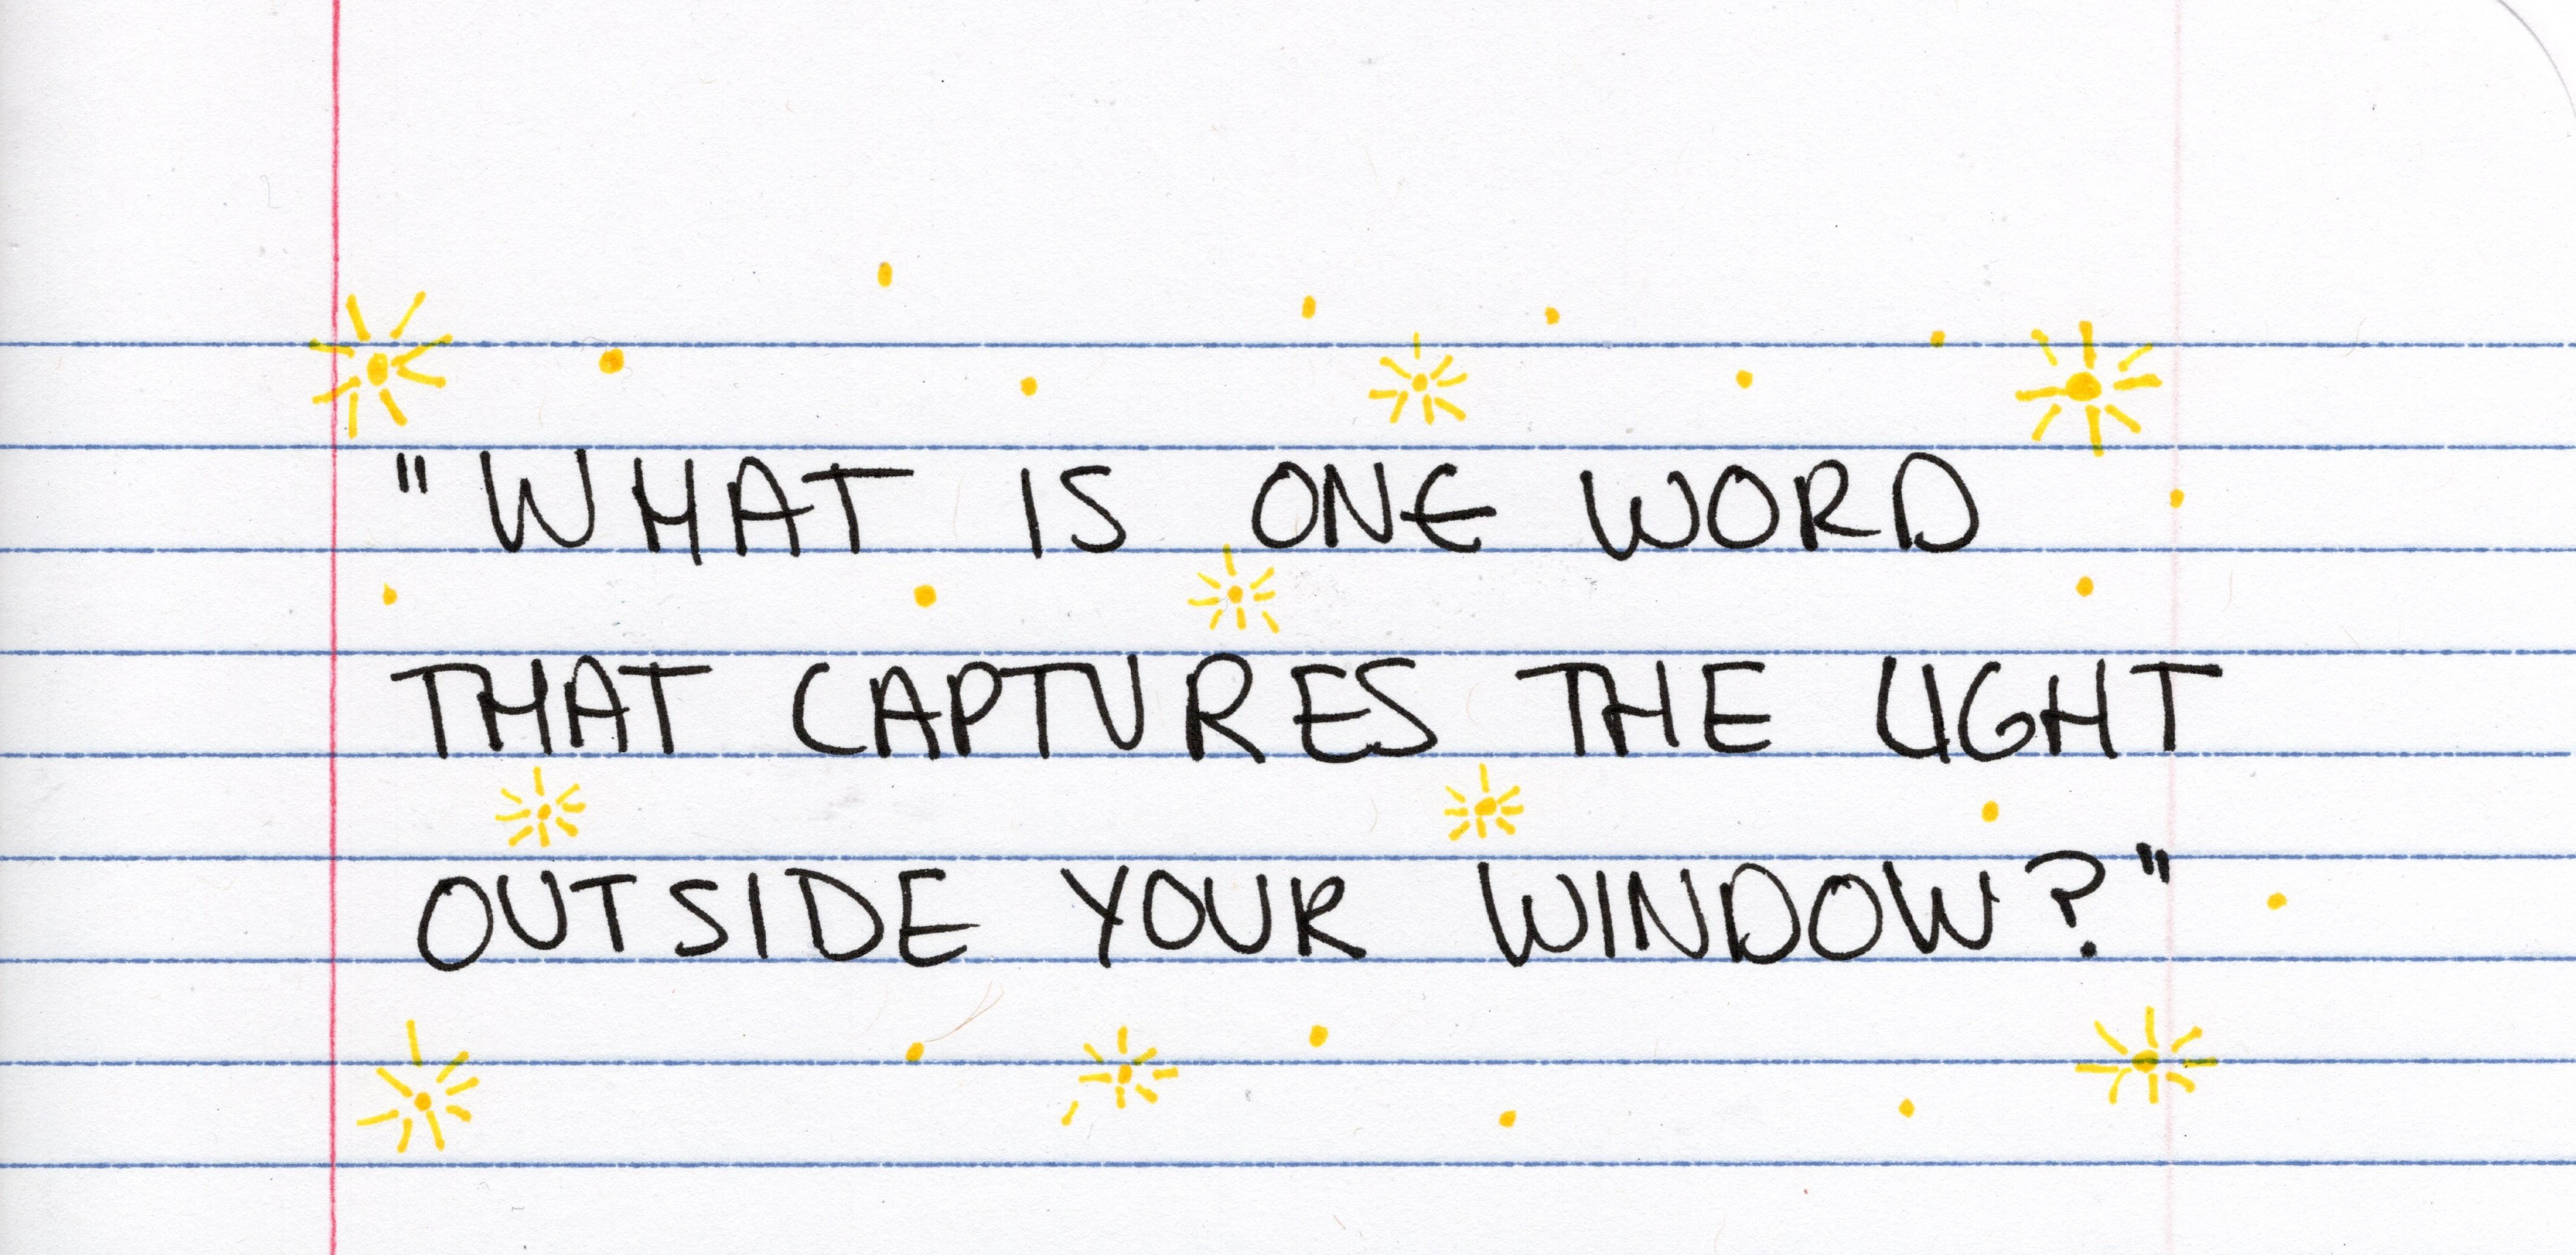 "WHAT IS ONE WORD
THAT CAPTURES THE LIGHT
OUTSIDE YOUR WINDOW?"